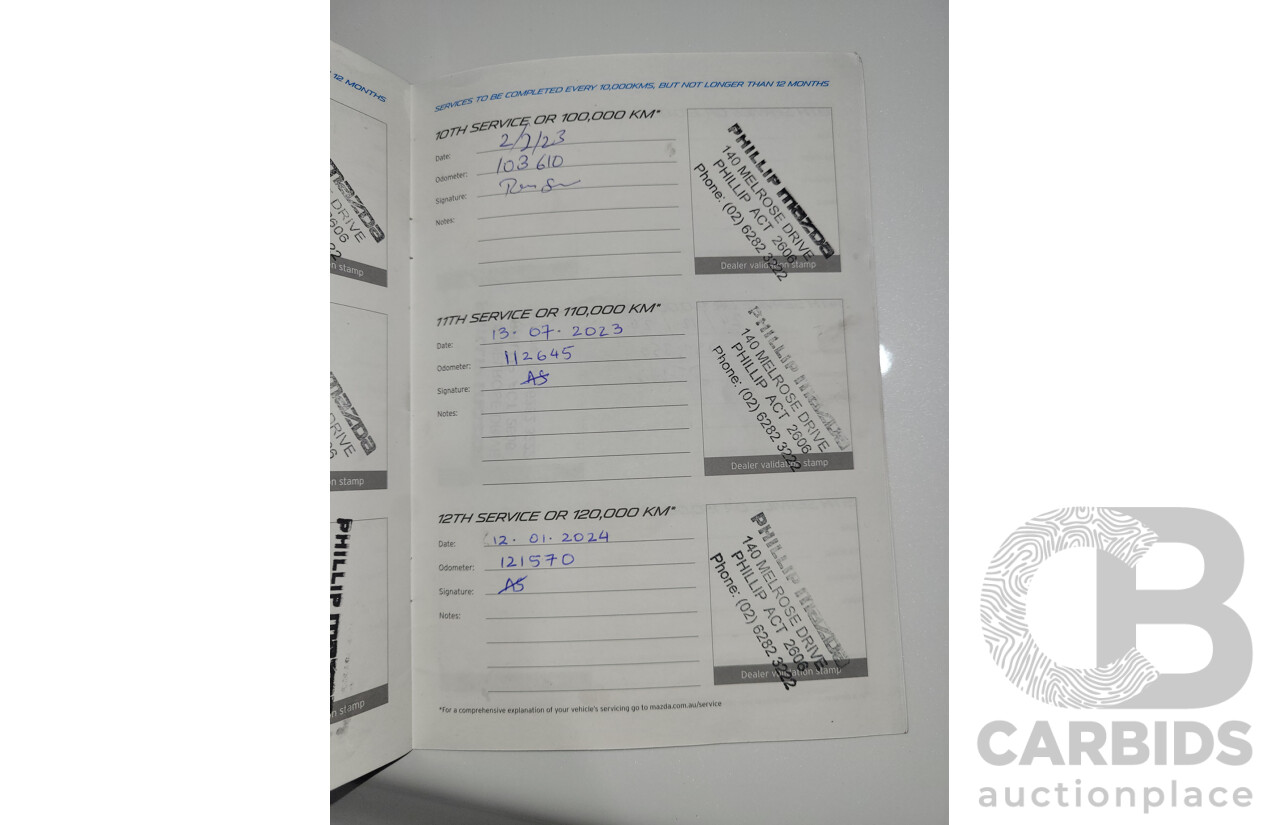 12 MONTHS
mazda
DRIVE
2606
n stamp
mazda
DRIVE
n stamp
PHILLIP mazda
n stamp
SERVICES TO BE COMPLETED EVERY 10,000KMS, BUT NOT LONGER THAN 12 MONTHS
10TH SERVICE OR 100,000 KM*
Date: 2/2/23
Odometer: 103610
Signature:
Notes:
PHILLIP mazda
140 MELROSE DRIVE
PHILLIP ACT 2606
Phone: (02) 6282 3222
Dealer validation stamp
11TH SERVICE OR 110,000 KM*
Date: 13. 07. 2023
Odometer: 112645
Signature: AS
Notes:
PHILLIP mazda
140 MELROSE DRIVE
PHILLIP ACT 2606
Phone: (02) 6282 3222
Dealer validation stamp
12TH SERVICE OR 120,000 KM*
Date: 12. 01. 2024
Odometer: 121570
Signature: AS
Notes:
PHILLIP mazda
140 MELROSE DRIVE
PHILLIP ACT 2606
Phone: (02) 6282 3222
Dealer validation stamp
*For a comprehensive explanation of your vehicle's servicing go to mazda.com.au/service
CB
CARBIDS
auctionplace